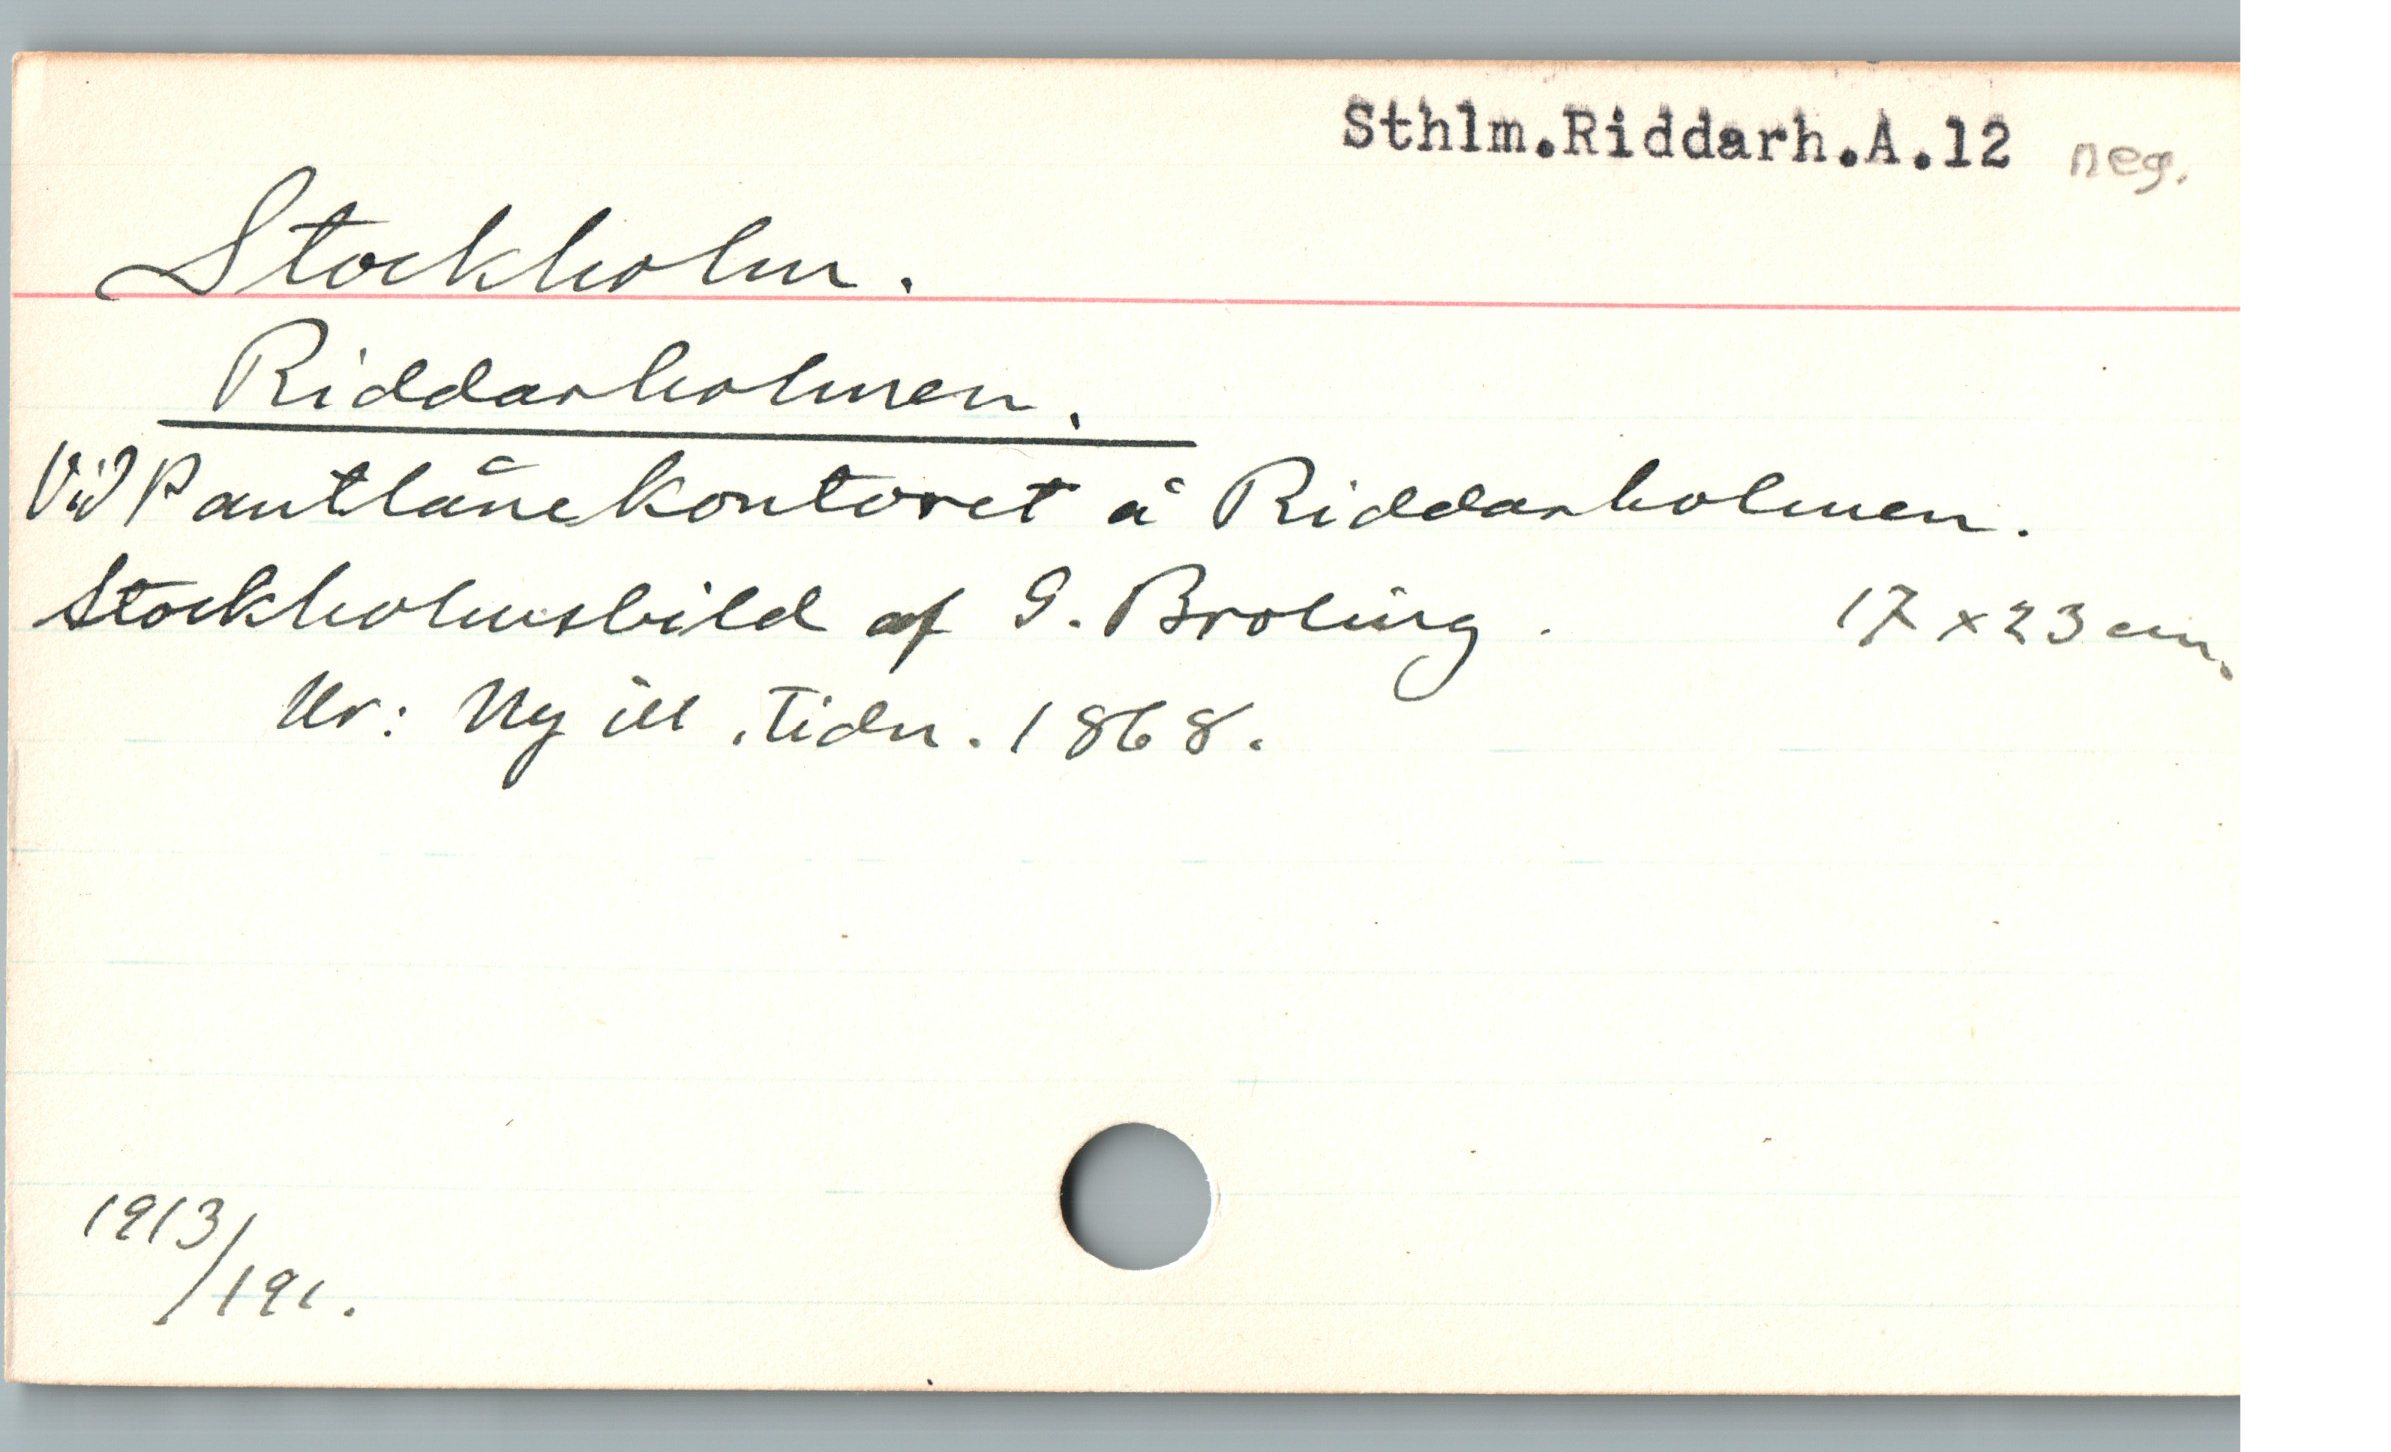 Sthlm.Riddarh.A.12 neg.
Stockholm.
Riddarholmen.
Vid Pantlånekontoret å Riddarholmen.
Stockholmsbild af G. Broling. 17 x 23 cm.
Ur: Ny ill. Tidn. 1868.
1913/191.